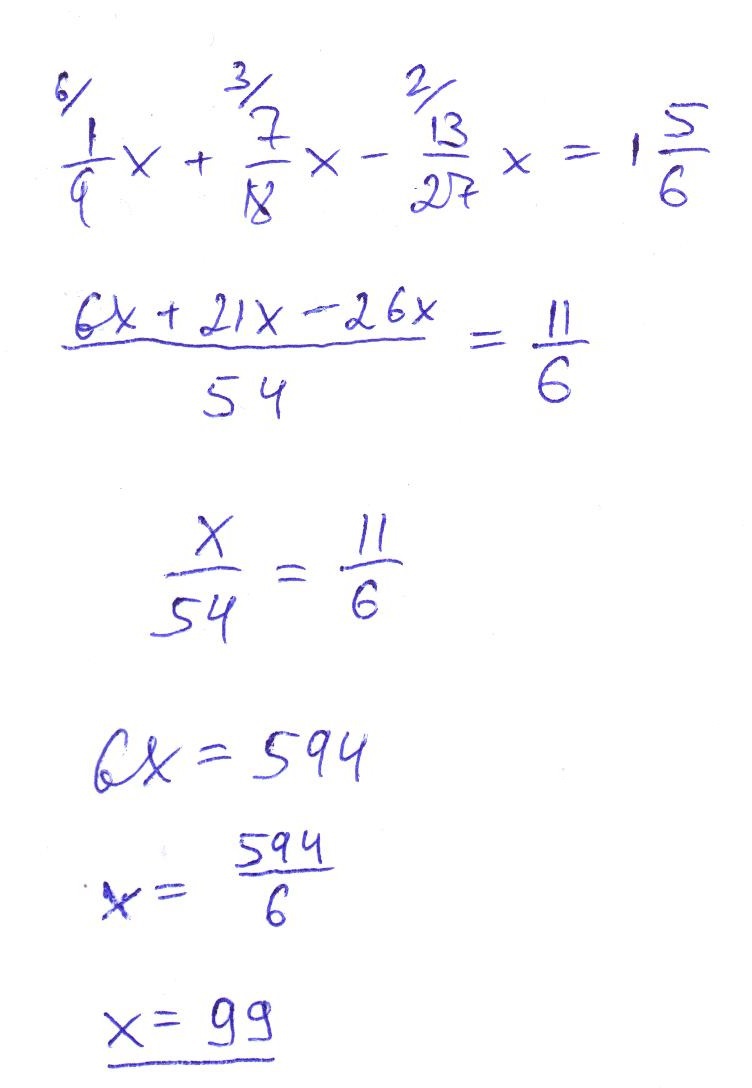 6/ 3/ 2/
1/9 x + 7/18 x - 13/27 x = 1 5/6
6x + 21x - 26x / 54 = 11/6
x/54 = 11/6
6x = 594
x = 594/6
x = 99